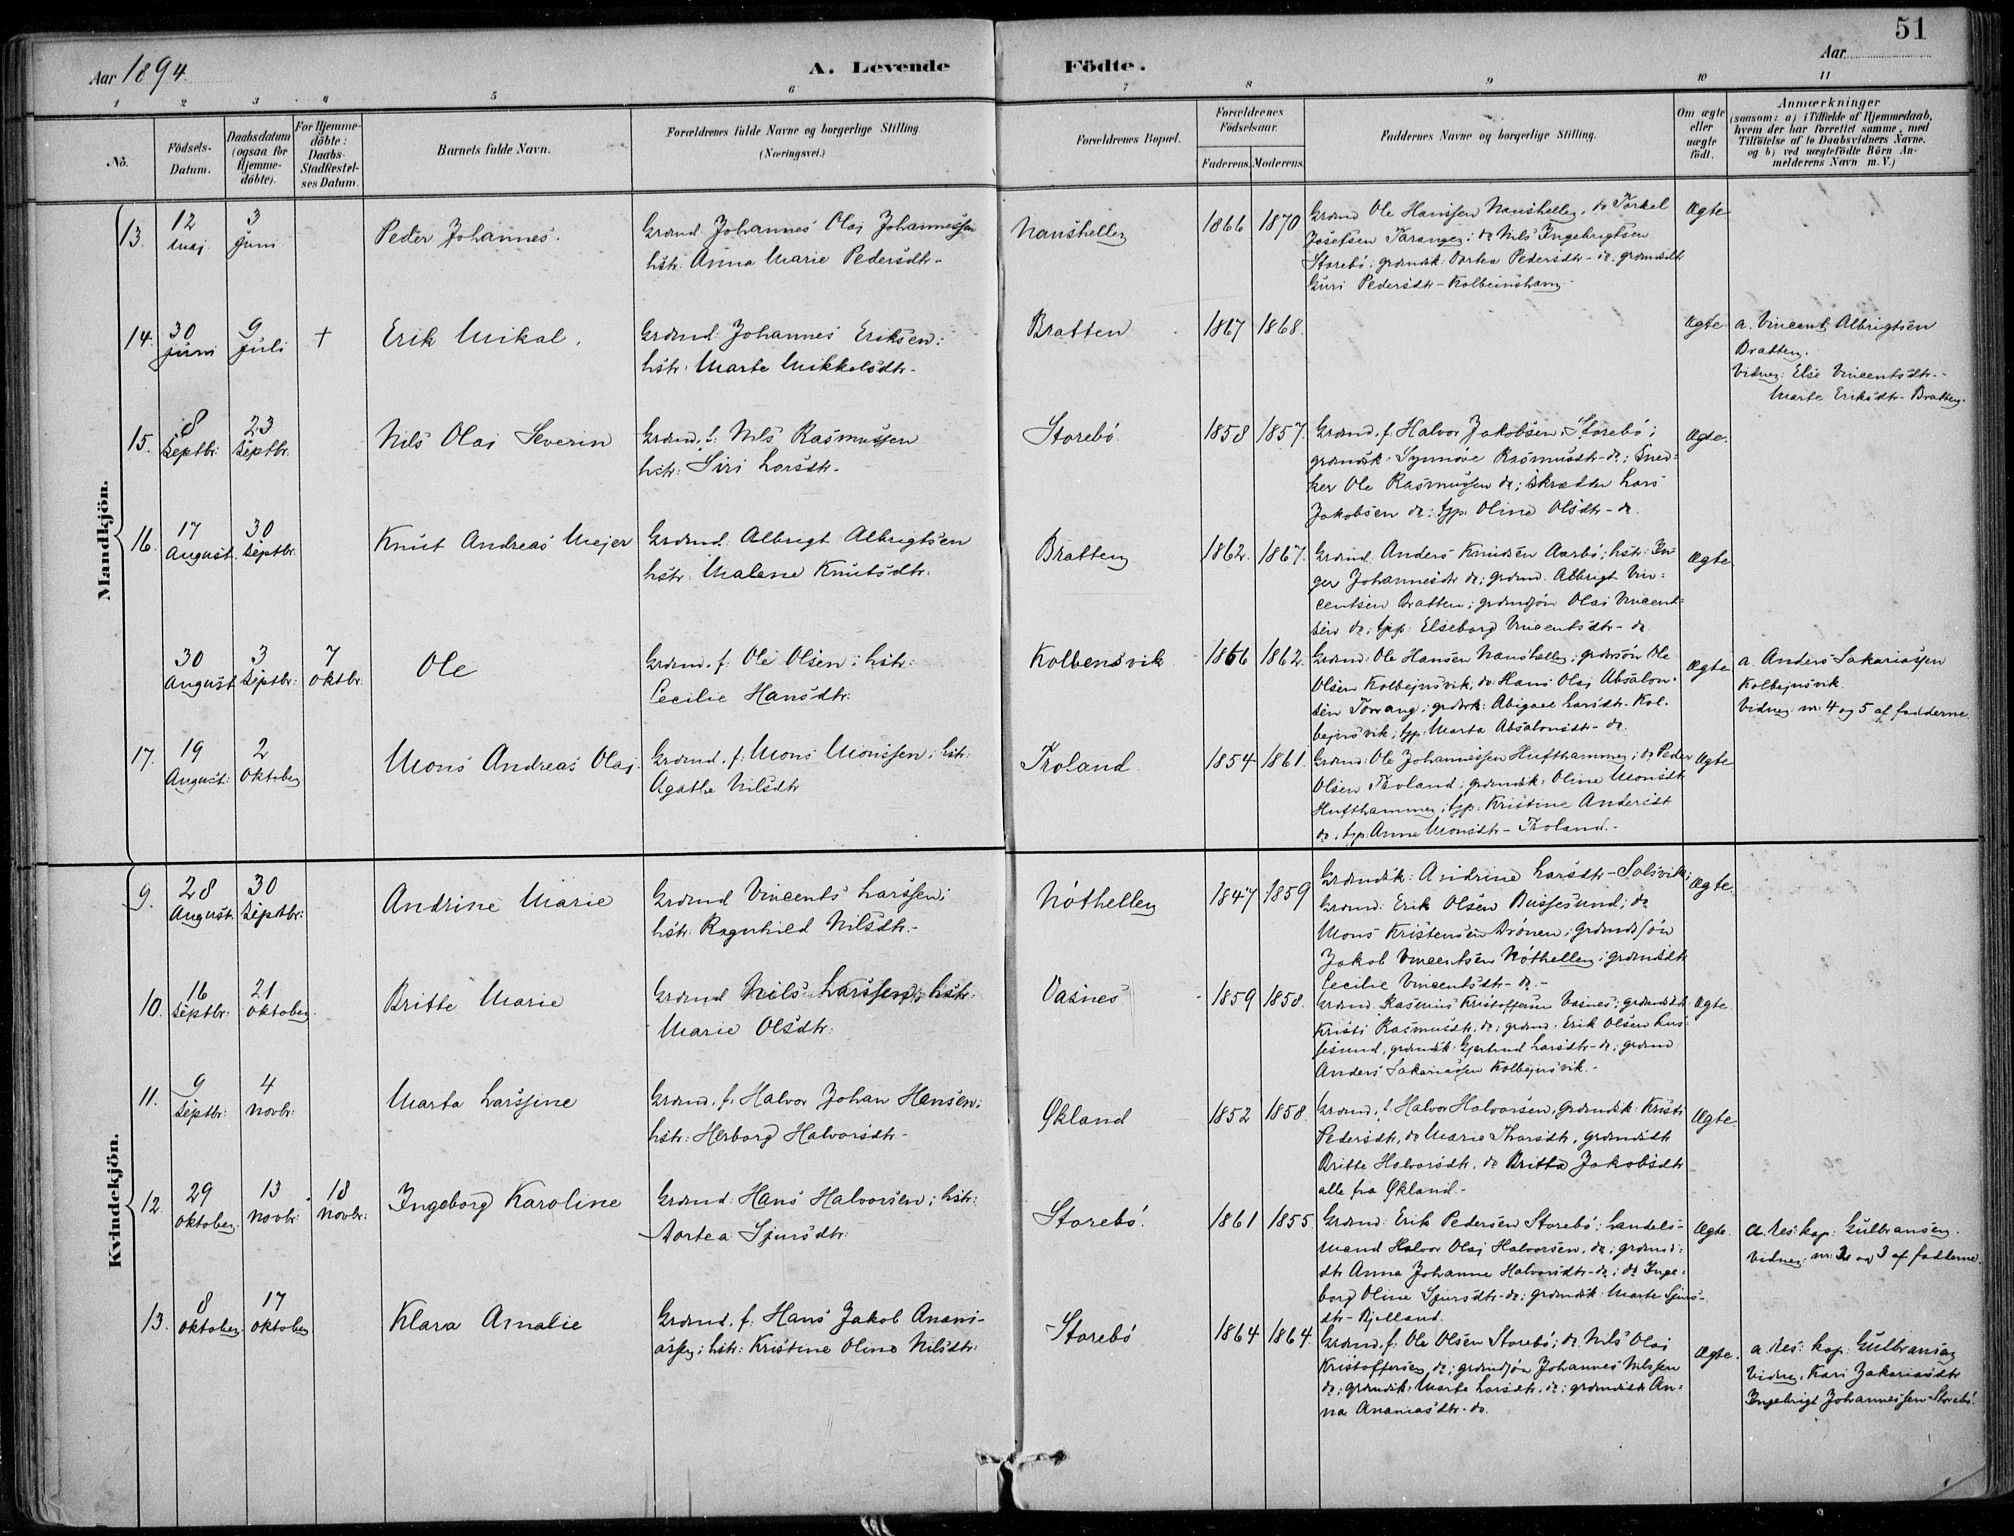 51
Aar 1894.
A. Levende Födte.
Aar
1 2 3 4 5 6 7 8 9 10 11
No.
Födsels-
Datum.
Daabsdatum
(ogsaa for
Hjemme-
döbte).
For Hjemme-
döbte:
Daabs-
Stadfæstel-
ses Datum.
Barnets fulde Navn.
Forældrenes fulde Navne og borgerlige Stilling.
(Næringsvei.)
Forældrenes Bopæl.
Forældrenes
Födselsaar.
Faderens.
Moderens.
Faddernes Navne og borgerlige Stilling.
Om ægte
eller
uægte
födt.
Anmærkninger
(saasom: a) i Tilfælde af Hjemmedaab,
hvem der har forrettet samme, med
Tilföielse af to Daabsvidners Navne.
og b) ved uægtefödte Börn An-
melderens Navn m. V.)
Mandkjön.
13.
12
Maj
3
Juni
Peder Johannes.
Grdmd. Johannes Olaj Johannessen
hstr: Anna Marie Pedersdtr.
Naushellen
1866
1870
Grdmd Ole Hansen Naushellen, do Torkel
Josefsen Taranger; do Nils Ingebrigtsen
Storebö; grdmdsk: Dortea Pedersdtr - do; grdmdsdtr
Guri Pedersdtr - Kolbeinshamn.
Ægte
14.
30
Juni
9
Juli
+
Erik Mikal.
Grdmd: Johannes Eriksen;
hstr: Marte Mikkelsdtr.
Bratten
1867
1868.
Ægte
a. Vincents Albrigtsen
Bratten.
Vidner: Else Vincentsdtr.
Marte Eriksdtr - Bratten.
15.
8
Septbr:
23
Septbr.
Nils Olai Severin
Grdmd. f: Nils Rasmussen
hstr: Siri Larsdtr.
Storebö.
1858
1857.
Grdmd. f. Halvor Jakobsen, Storebö;
grdmdsk: Synnöve Rasmusdtr - do; Sned-
ker Ole Rasmussen do; skrædder Lars
Jakobsen do; tjp. Oline Olsdtr - do.
Ægte.
16.
17
August.
30
Septbr.
Knut Andreas Mejer
Grdmd. Albrigt Albrigtsen
hstr: Malene Knutsdtr:
Bratten
1862.
1867.
Grdmd. Anders Knudsen Aarbö; hstr: In-
ger Johannesdtr do; grdmd. Albrigt Vin-
centsen Bratten; grdmdsön Olai Vincent-
sen do; tjp: Elseborg Vincentsdtr - do
Ægte
30
August
3
Septbr:
7
Oktbr.
Ole
Grdmd. f: Ole Olsen; hstr:
Cecilie Hansdtr:
Kolbensvik
1866
1862.
Grdmd: Ole Hansen Naushellen; grdmsön Ole
Olsen Kolbejnsvik, do Hans Olaj Absalon-
sen Torvang; grdmsk: Abigael Larsdtr. Kol-
bejnsvik; tjp. Marta Absalonsdtr - do
Ægte
a. Anders Sakariassen
Kolbejnsvik.
Vidner: nr. 4 og 5 af fadderne.
17.
19
August:
2
Oktober
Mons Andreas Olaj.
Grdmd. f: Mons Monssen; hstr:
Agathe Nilsdtr
Troland.
1854
1861.
Grdmd: Ole Johannessen Hufthammer; do Peder
Olsen Troland; grdmdsk: Oline Monsdtr
Hufthammer; tjp. Kristine Andersdtr
do; tjp. Anne Monsdtr - Troland.
Ægte
Kvindekjön.
9.
28
August.
30
Septbr:
Andrine Marie
Grdmd Vincents Larssen;
hstr: Ragnhild Nilsdtr.
Nöthellen
1847
1859
Grdmdsk: Andrine Larsdtr - Salsvik;
Grdmd: Erik Olsen Bussesund; do
Mons Kristensen Drönen; grdmdsön
Jakob Vincentsen Nöthellen; grdmsdtr
Cecilie Vincentsdtr - do.
Ægte.
10.
16
Septbr:
21
Oktober.
Britte Marie
Grdmd Nils Larssen; hstr:
Marie Olsdtr:
Vasnes
1859
1858.
Grdmd. Rasmus Kristoffersen Vasnes; grdmdsdtr
Kristi Rasmusdtr. do; grdmd. Erik Olsen
grdmdsk: Gjertrud Larsdtr - do; grdmd
Anders Sakariassen Kolbejnsvik.
Ægte.
11.
9
Septbr:
4
Novbr:
Marta Larssine
Grdmd. f: Halvor Johan Hansen;
hstr: Herborg Halvorsdtr.
Økland
1852
1858.
Grdmd. f. Halvor Halvorsen, grdmdsk: Kristi
Pedersdtr, do Marie Tharsdtr, grdmdsdtr
Britte Halvorsdtr, do Britta Jakobsdtr
alle fra Økland.
Ægte.
12
29
Oktober.
13
Novbr:
18
Novbr:
Ingeborg Karoline
Grdmd: Hans Halvorsen; hstr:
Dortea Sjursdtr:
Storebö.
1861
1855.
Grdmd: Erik Pedersen Storebö; handels-
mand Halvor Olaj Halvorsen, do; grdmds-
dtr Anna Johanne Halvorsdtr - do; do Inge-
borg Oline Sjursdtr - do; grdmdsk: Marte Sjurs-
dtr - Bjelland.
Ægte.
a. res: kap: Gulbransen.
Vidner: nr: 2 og 3 af fadderne.
13.
8
Oktober
17
Oktober
Klara Amalie
Grdmd. f: Hans Jakob Anani-
assen; hstr: Kristine Oline Nilsdtr:
Storebö
1864
1864.
Grdmd. f: Ole Olsen Storebö; do Nils Olai
Kristoffersen do; grdmdsön Johannes Nilssen
do; grdmdsk: Marte Larsdtr. do; grdmdsdtr An-
na Ananiasdtr - do.
Ægte.
a. res: kap: Gulbransen
Vidner: Kari Zakariasdtr
Ingebrigt Johannessen - Storebö.